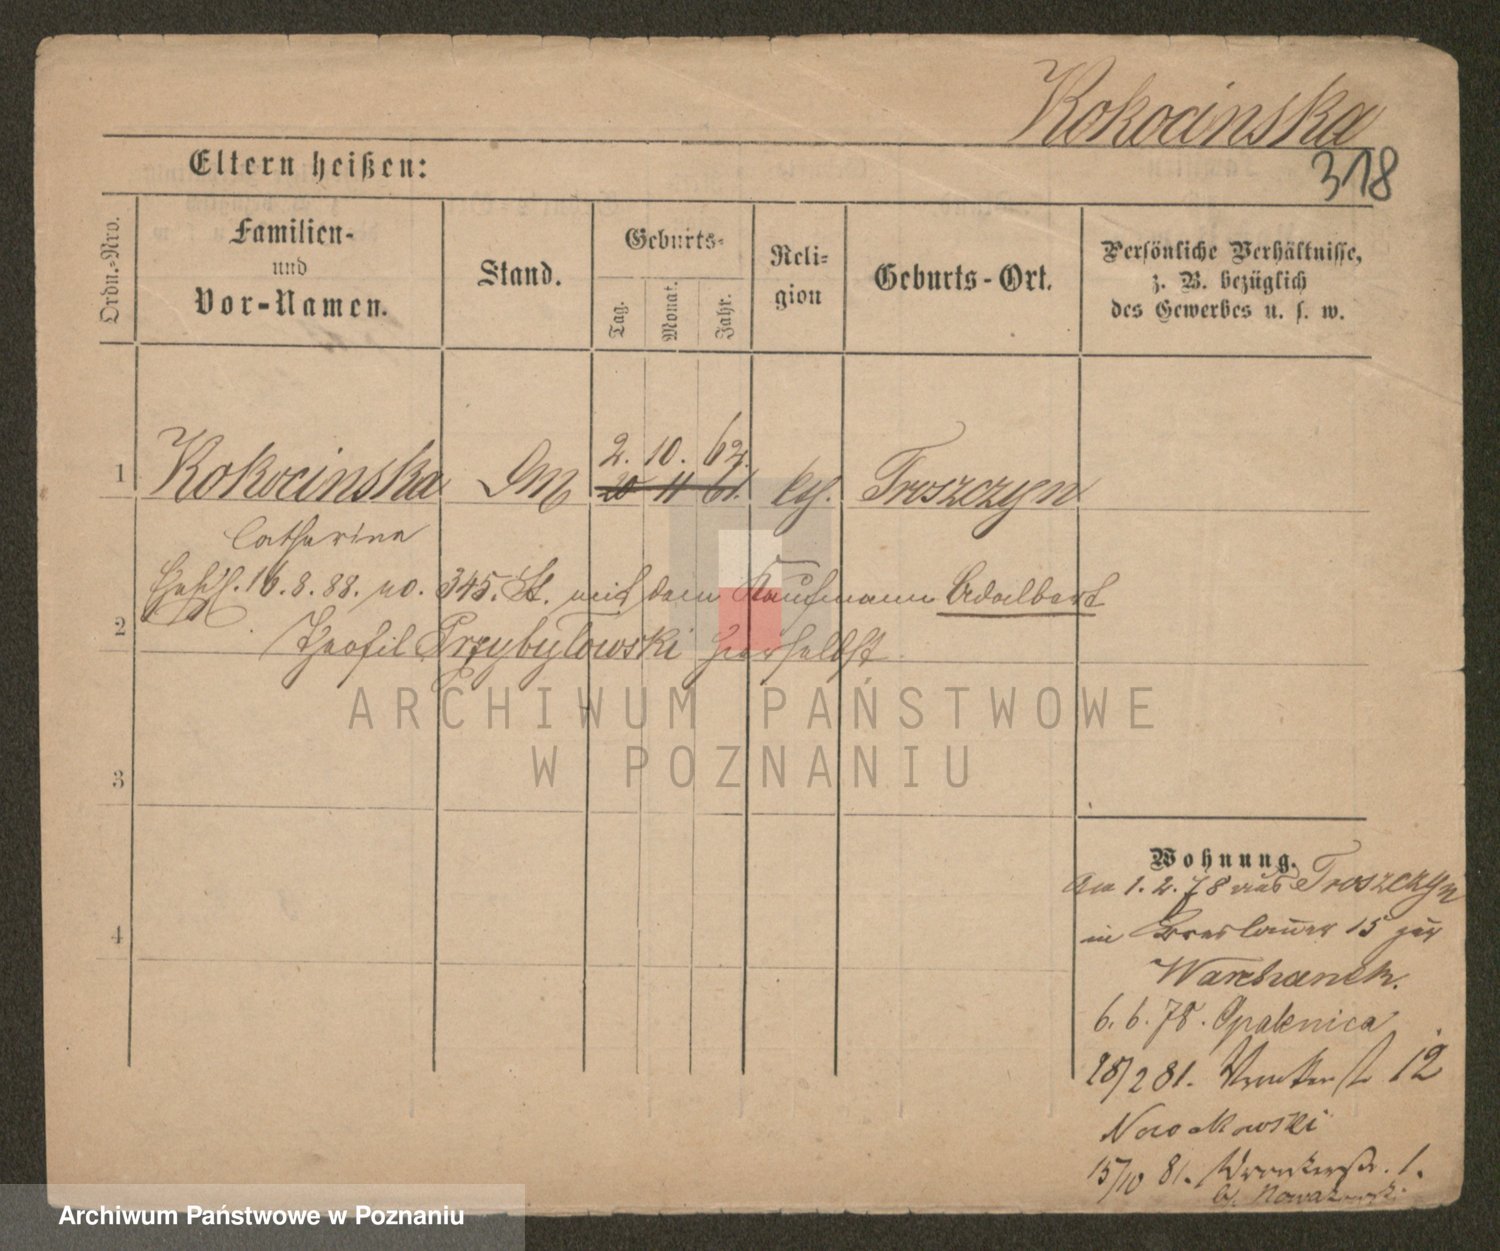 Kokocinska
318
Eltern heißen:
Ordn.-Nro.
Familien-
und
Vor-Namen.
Stand.
Geburts-
Tag.
Monat.
Jahr.
Reli-
gion
Geburts-Ort.
Persönliche Verhältnisse,
z. B. bezüglich
des Gewerbes u. s. w.
2. 10. 62.
1 Kokocinska 20 11 61. Troszczyn
Catharina
16.8.88. no. 345. St. mit dem Kaufmann Adalbert
2
Theofil Przybylowski hierselbst
3
4
Wohnung.
Am 1.2.78 aus Troszczyn
in Breslauer 15 zur
6.6.78. Opalenica
28/2 81. 12
Nowakowski
15/10 81. 1.
Nowakowski
ARCHIWUM PAŃSTWOWE
W POZNANIU
Archiwum Państwowe w Poznaniu